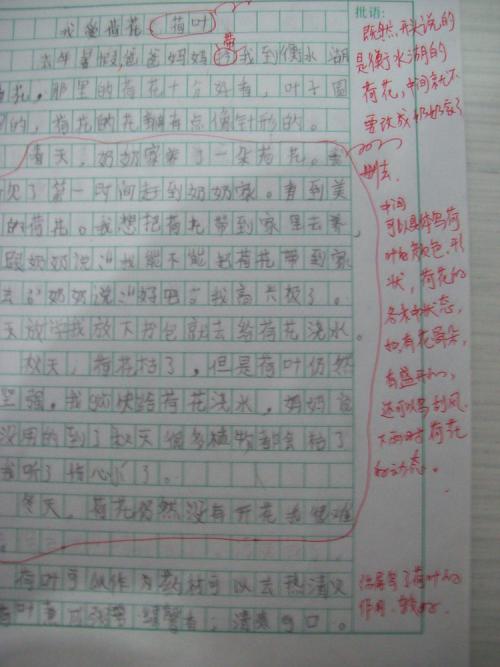 我爱荷花（荷叶）
去年暑假,爸爸妈妈带我到衡水湖
花。那里的荷花十分好看,叶子圆
的,荷花的花瓣有点像针形的。
春天,奶奶家养了一朵荷花。
了第一时间赶到奶奶家。看到美
的荷花。我想把荷花带到家里去养,
跟奶奶说:“我能不能把荷花带到家
去?”奶奶说:“好吧。”我高兴极了。
天放学我放下书包就去给荷花浇水。
秋天,荷花枯了,但是荷叶仍然
坚强。我赶快给荷花浇水,妈妈说
没用的到了秋天很多植物都会枯了
我听了伤心了。
冬天,荷花仍然没有开花我很难
荷叶可以作为药材可以去热清火
荷叶
清爽可口。
批语:
既然开头说的
是衡水湖的
荷花,中间就不
要改成奶奶家了
删去.
中间
可以具体写荷
叶的颜色、形
状,荷花的
各种状态,
如,有花骨朵,
有盛开的,
还可以写刮风、
下雨时荷花
的动态。
结尾写了荷叶的
作用,